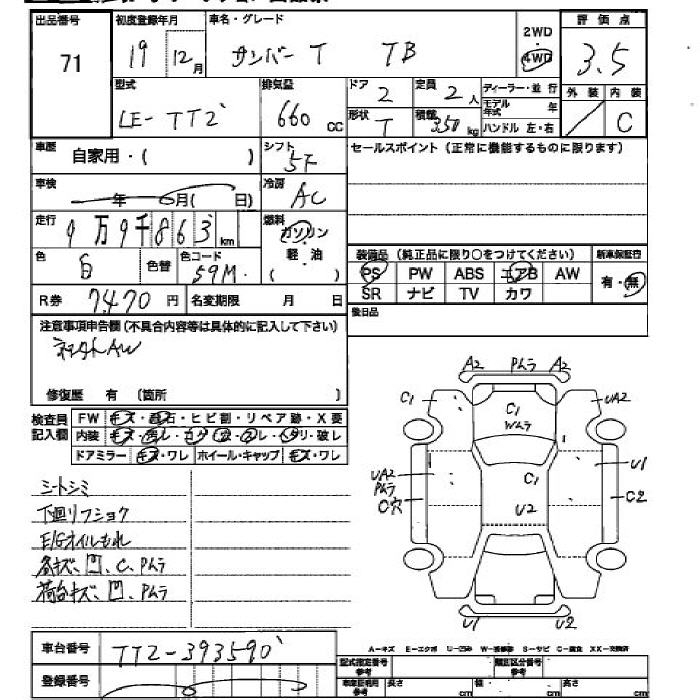 出品番号 初度登録年月 車名・グレード 2WD 評価点
71 19 12月 サンバー T TB 4WD 3.5
型式 排気量 ドア 2 定員 2人 ディーラー・並行 外装 内装
LE-TT2 660cc 形状 T 積載 350kg モデル年式 年 ハンドル 左・右 C
車歴 自家用・( ) シフト 5F セールスポイント (正常に機能するものに限ります)
車検 年 6月( 日) 冷房 AC
走行 9万9千863km 燃料 ガソリン
色 白 色替 色コード 59M 軽・油 ( ) 装備品 (純正品に限り○をつけてください) 新車保証書
PS PW ABS エアB AW 有・無
R券 7470円 名変期限 月 日 SR ナビ TV カワ
注意事項申告欄 (不具合内容等は具体的に記入して下さい) 後日品
AW
修復歴 有 (箇所 )
検査員 FW キズ・飛石・ヒビ割・リペア跡・X要
記入欄 内装
ドアミラー キズ・ワレ ホイール・キャップ キズ・ワレ
A2 Pムラ A2
C1 C1 UA2
Wムラ
UA2 C1 U1
Pムラ
C穴 U2 C2
U1 U2
シートシミ
下廻リフショク
E/Gオイルもれ
各キズ、凹、C、Pムラ
荷台キズ、凹、Pムラ
車台番号 TT2-393590
A-キズ E-エクボ U-凹み W-補修跡 S-サビ C-腐食 XX-交換済
登録番号 型式指定番号 参考 類別区分番号 参考
長さ cm 幅 cm 高さ cm